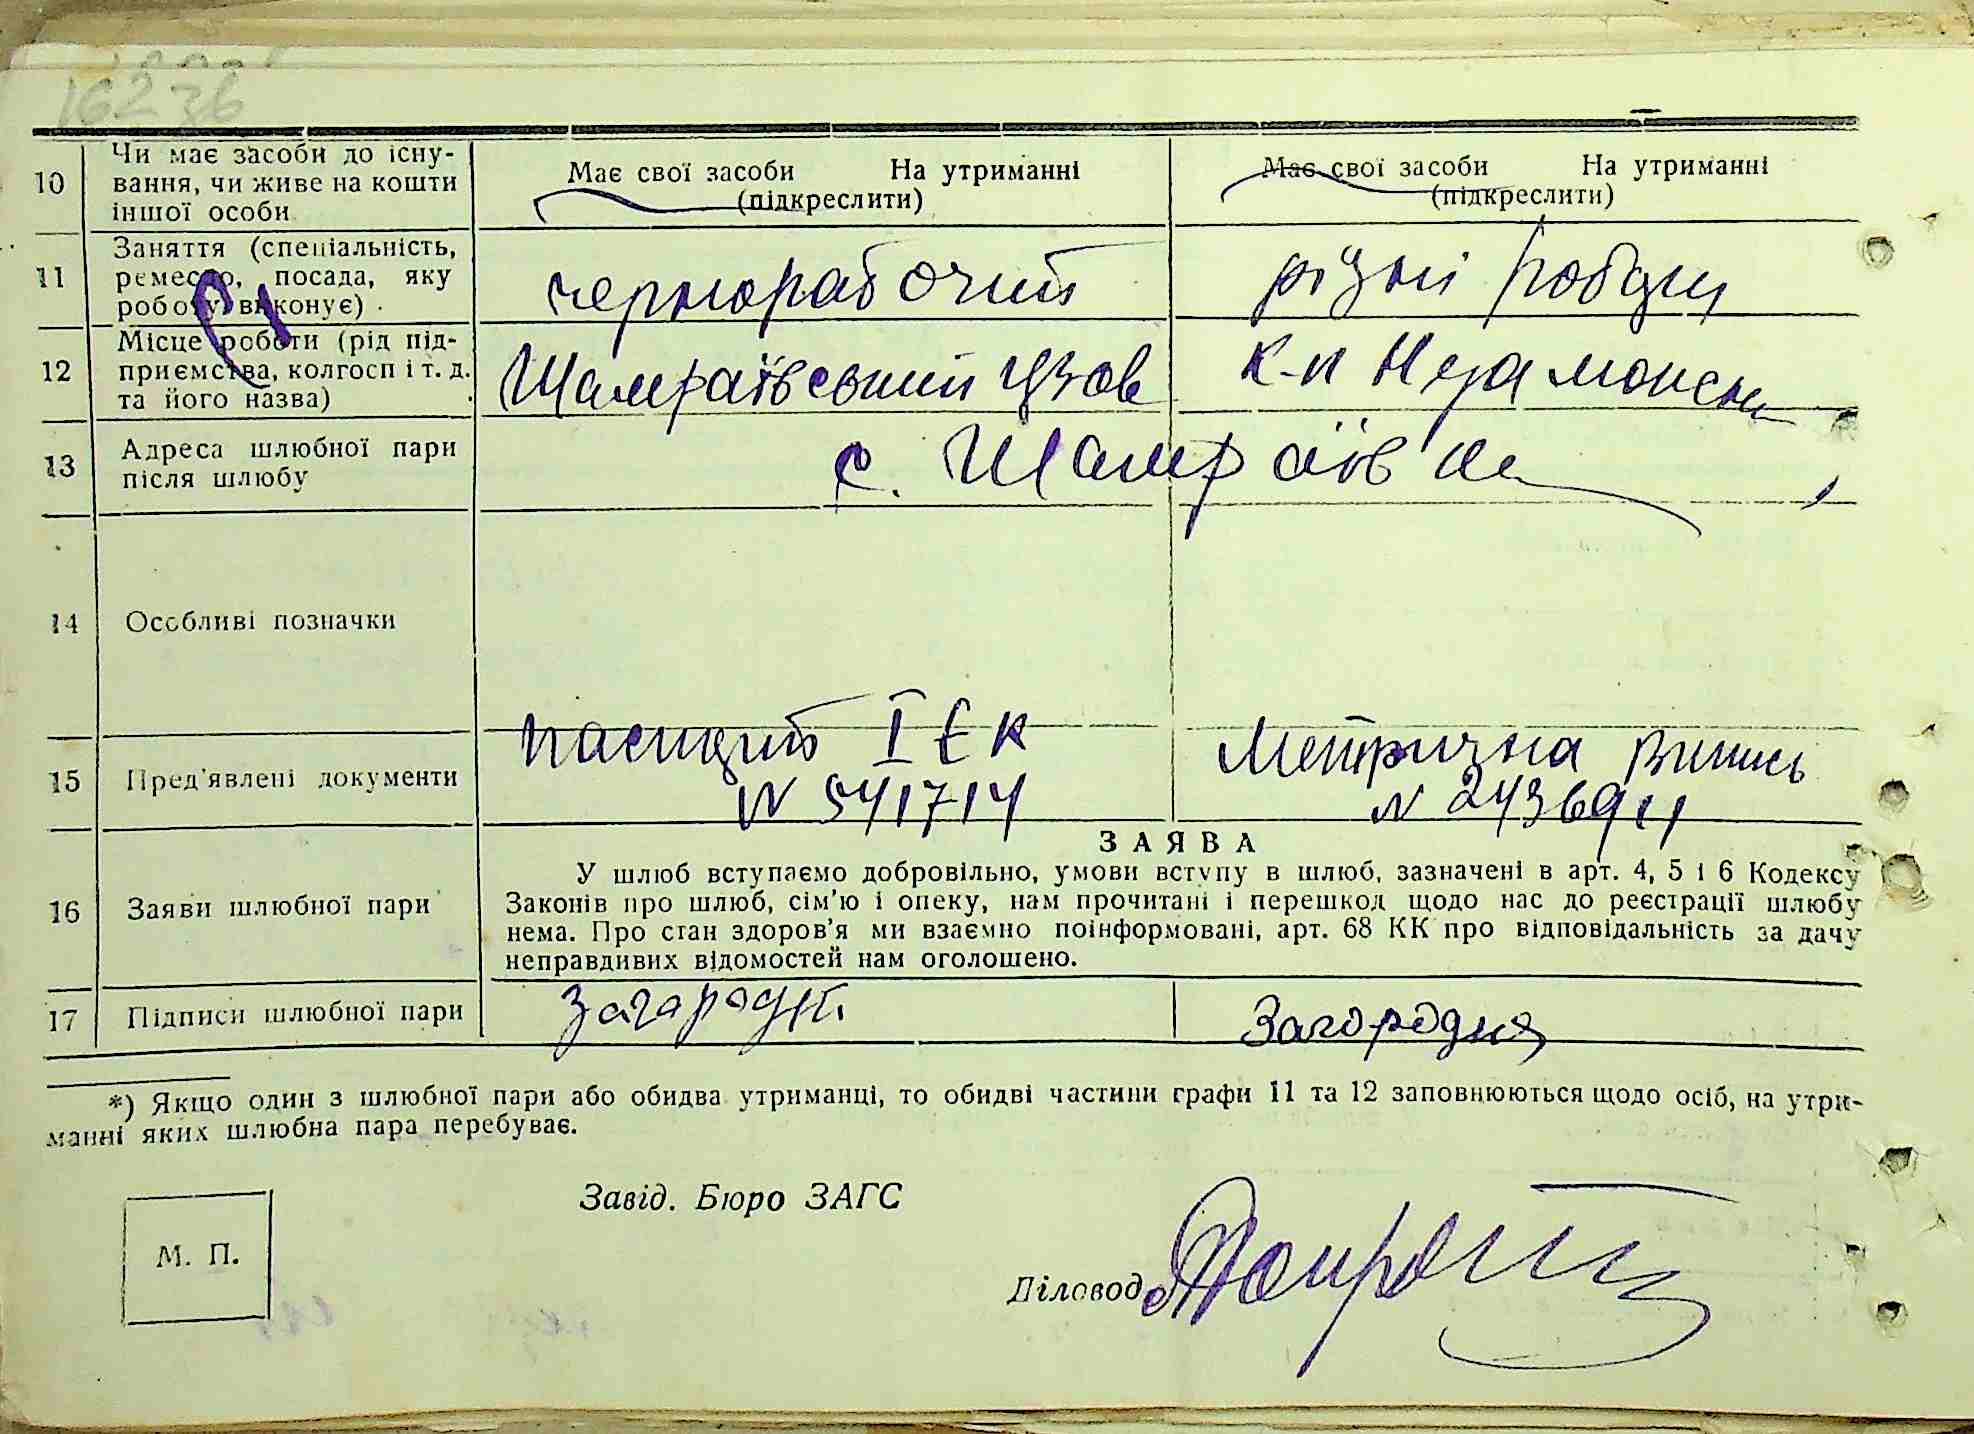 162 зв
10 Чи має засоби до існу-
вання, чи живе на кошти
іншої особи
Має свої засоби На утриманні
(підкреслити)
Має свої засоби На утриманні
(підкреслити)
11 Заняття (спеціальність,
ремесло, посада, яку
роботу виконує)
чернорабочий
різні роботи
12 Місце роботи (рід під-
приємства, колгосп і т. д.
та його назва)
Шамраївський
к-п
13 Адреса шлюбної пари
після шлюбу
с. Шамраївка
14 Особливі позначки
15 Пред'явлені документи
паспорт І ЄК
N 541714
Метрична випись
N
ЗАЯВА
16 Заяви шлюбної пари
У шлюб вступаємо добровільно, умови вступу в шлюб, зазначені в арт. 4, 5 і 6 Кодексу
Законів про шлюб, сім'ю і опеку, нам прочитані і перешкод щодо нас до реєстрації шлюбу
нема. Про стан здоров'я ми взаємно поінформовані, арт. 68 КК про відповідальність за дачу
неправдивих відомостей нам оголошено.
17 Підписи шлюбної пари
Загородня
*) Якщо один з шлюбної пари або обидва утриманці, то обидві частини графи 11 та 12 заповнюються щодо осіб, на утри-
манні яких шлюбна пара перебуває.
Завід. Бюро ЗАГС
М. П.
Діловод